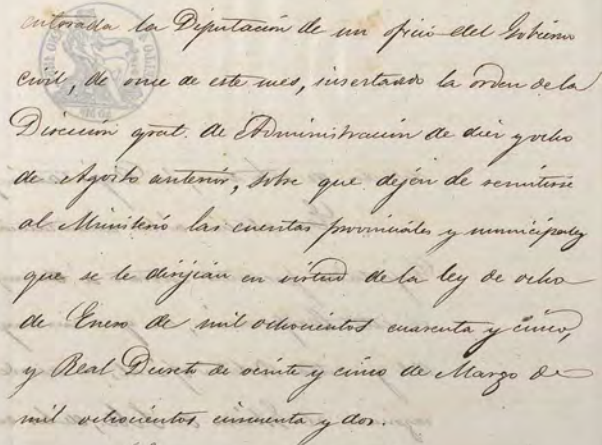 enterada la Diputación de un oficio del Gobierno
civil, de once de este mes, insertando la orden de la
Dirección gral. de Administración de diez y ocho
de Agosto anterior, sobre que dejen de remitirse
al Ministerio las cuentas provinciales y municipales
que se le dirijian en virtud de la ley de ocho
de Enero de mil ochocientos cuarenta y cinco,
y Real Decreto de veinte y cinco de Marzo de
mil ochocientos cincuenta y dos.